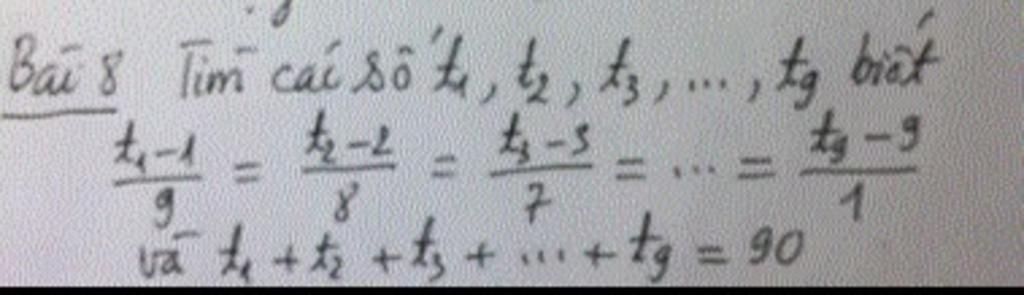 Bài 8 Tìm các số t₁, t₂, t₃, ..., t₉ biết
(t₁-1)/9 = (t₂-2)/8 = (t₃-3)/7 = ... = (t₉-9)/1
và t₁ + t₂ + t₃ + ... + t₉ = 90